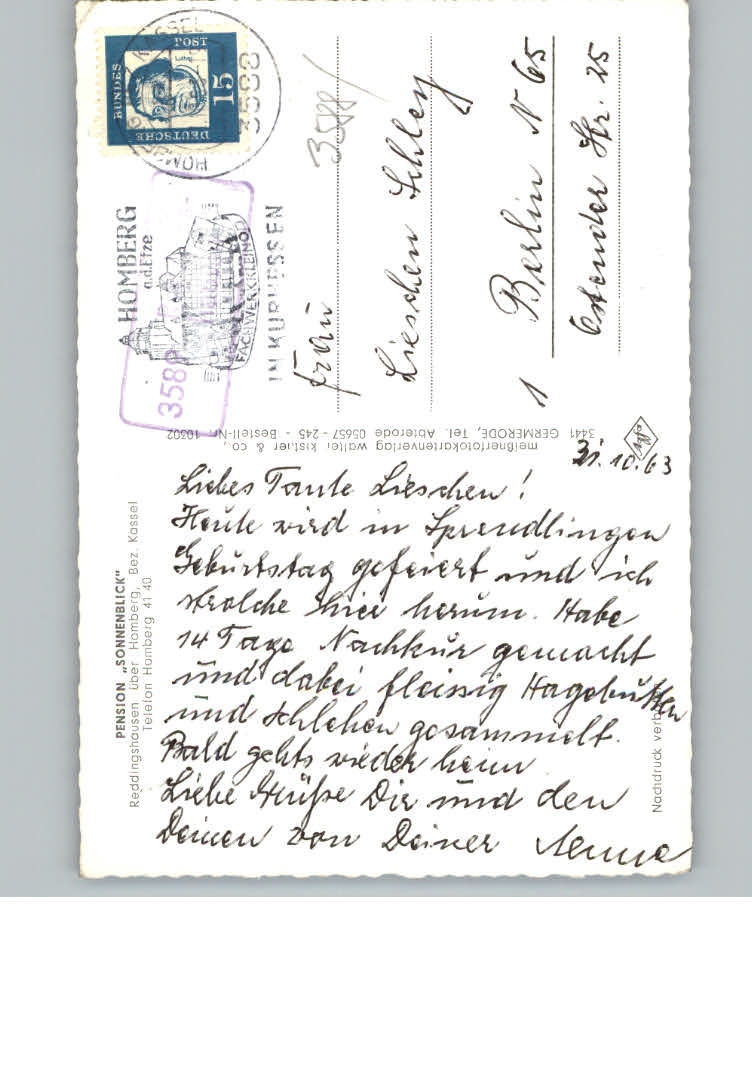 PENSION „SONNENBLICK"
Reddingshausen über Homberg, Bez. Kassel
Telefon Homberg 41 40
31.10.63
Liebes Tante Lieschen!
Heute wird in Sprendlingen
Geburtstag gefeiert und ich
strolche hier herum. Habe
14 Tage Nachkur gemacht
und dabei fleissig Hagebutten
und Schlehen gesammelt.
Bald gehts wieder heim
Liebe Grüße Dir und den
Deinen von Deiner
Nachdruck verb
meißnerfotokartenverlag walter kistner & co.,
3441 GERMERODE, Tel. Abterode 05657 - 245 - Bestell-Nr. 10302
Agfa
DEUTSCHE
BUNDES
POST
Luther
15
KASSEL
3588
HOMBERG
a.d.Efze
FACHWERKKLEINOD
IN KURHESSEN
358
3588
Frau
Lieschen Schley
1 Berlin N 65
Ostender Str. 25